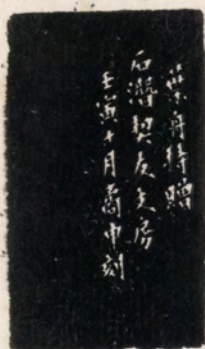 紫舟持贈
石潛契友文房
壬寅十月喬申刻